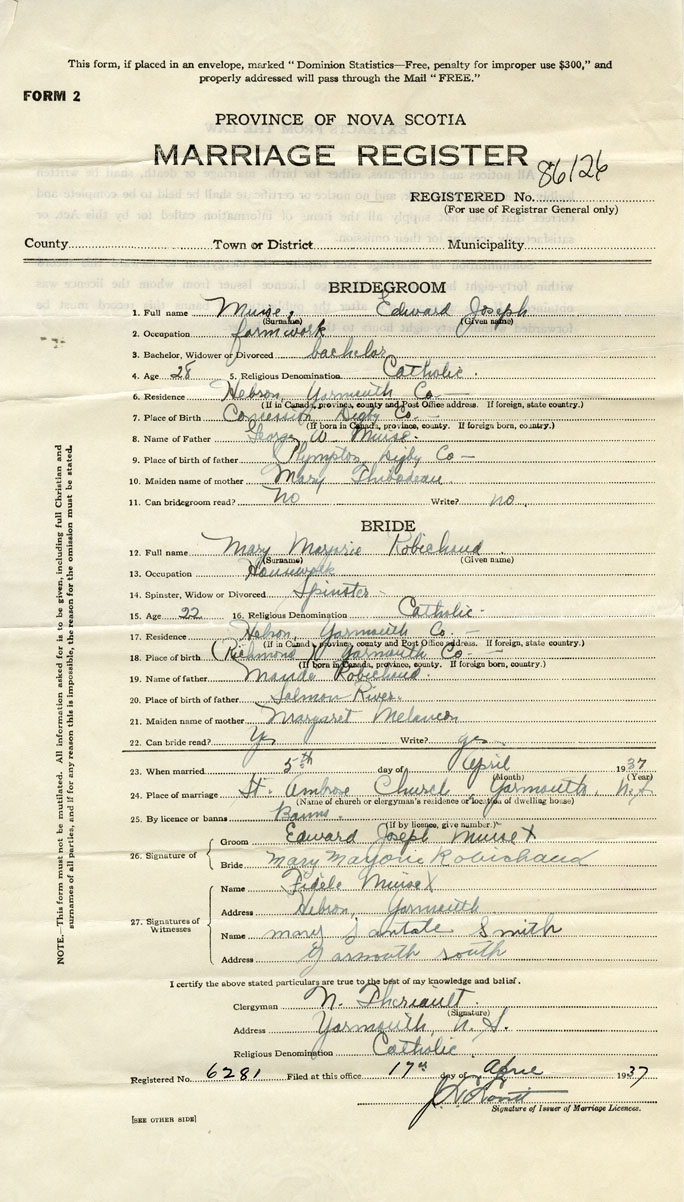 This form, if placed in an envelope, marked “Dominion Statistics—Free, penalty for improper use $300,” and
properly addressed will pass through the Mail “FREE.”
FORM 2
PROVINCE OF NOVA SCOTIA
MARRIAGE REGISTER
86126
REGISTERED No.
(For use of Registrar General only)
County Town or District Municipality
BRIDEGROOM
1. Full name Muise, Edward Joseph
(Surname) (Given name)
2. Occupation farmwork
3. Bachelor, Widower or Divorced bachelor
4. Age 28 5. Religious Denomination Catholic.
6. Residence Hebron, Yarmouth Co—
(If in Canada, province, county and Post Office address. If foreign, state country.)
7. Place of Birth Concession Digby Co.
(If born in Canada, province, county. If foreign born, country.)
8. Name of Father George W Muise.
9. Place of birth of father Plympton, Digby Co—
10. Maiden name of mother Mary Thibodeau.
11. Can bridegroom read? no Write? no.
BRIDE
12. Full name Mary Marjorie Robichaud
(Surname) (Given name)
13. Occupation Housework
14. Spinster, Widow or Divorced Spinster
15. Age 22 16. Religious Denomination Catholic-
17. Residence Hebron, Yarmouth Co. —
(If in Canada, province, county and Post Office address. If foreign, state country.)
18. Place of birth Richmond Yarmouth Co—
(If born in Canada, province, county. If foreign born, country.)
19. Name of father Mande Robichaud.
20. Place of birth of father Salmon River.
21. Maiden name of mother Margaret Melancon
22. Can bride read? Yes Write? yes
23. When married 5th day of April 1937
(Month) (Year)
24. Place of marriage St. Ambrose Church, Yarmouth, N.S
(Name of church or clergyman's residence or location of dwelling house)
25. By licence or banns Banns.
(If by licence, give number.)
26. Signature of
Groom Edward Joseph Muise X
Bride Mary Marjorie Robichaud
27. Signatures of Witnesses
Name Fidele Muise X
Address Hebron, Yarmouth
Name Mary Smith
Address Yarmouth south
I certify the above stated particulars are true to the best of my knowledge and belief.
Clergyman N. Theriault.
(Signature)
Address Yarmouth, N.S.
Religious Denomination Catholic.
Registered No. 6281 Filed at this office 17th day of April 1937
Signature of Issuer of Marriage Licences.
[SEE OTHER SIDE]
NOTE.—This form must not be mutilated. All information asked for is to be given, including full Christian and
surnames of all parties, and if for any reason this is impossible, the reason for the omission must be stated.